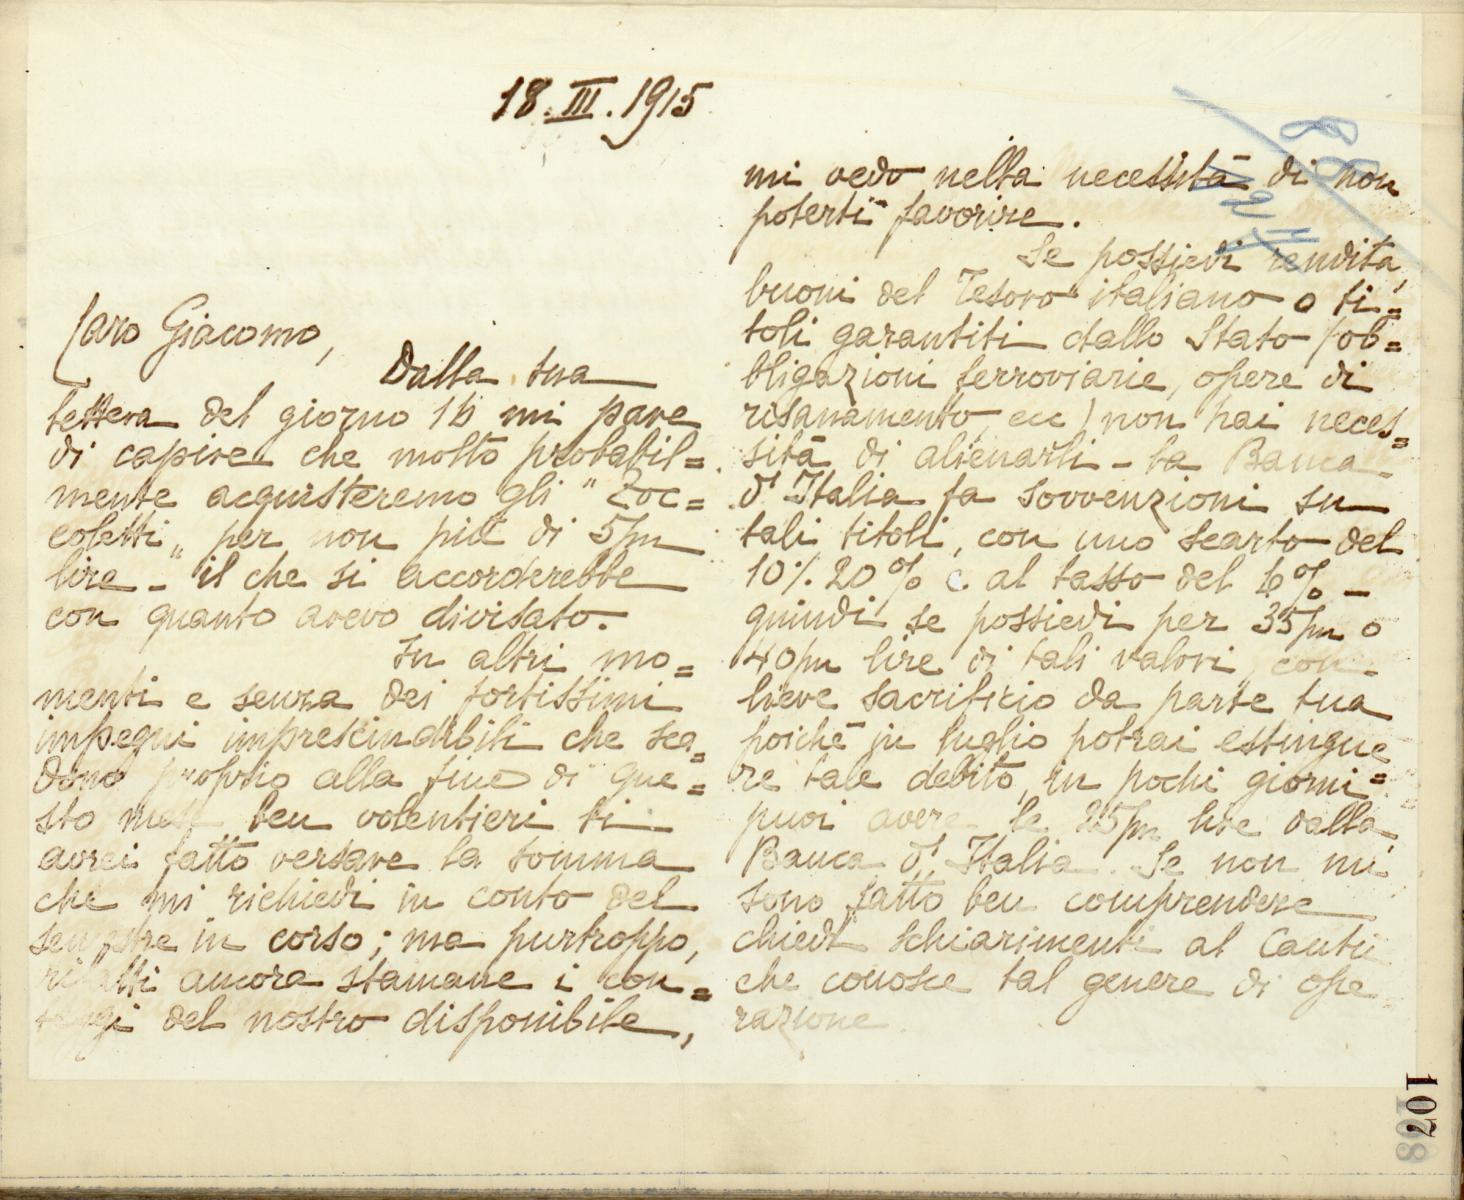 18.III.1915
Caro Giacomo,
Dalla tua
lettera del giorno 16 mi pare
di capire che molto probabil=
mente acquisteremo gli "Zoc=
coletti" per non più di 5/m
lire - il che si accorderebbe
con quanto avevo divisato.
In altri mo=
menti e senza dei fortissimi
impegni imprescindibili che sca=
dono proprio alla fine di que=
sto mese ben volentieri ti
avrei fatto versare la somma
che mi richiedi in conto del
semestre in corso; ma purtroppo,
rifatti ancora stamane i con=
teggi del nostro disponibile,
mi vedo nella necessità di non
poterti favorire.
Se possiedi rendita,
buoni del Tesoro italiano o ti=
toli garantiti dallo Stato (ob=
bligazioni ferroviarie, opere di
risanamento, ecc) non hai neces=
sità di alienarli - la Banca
d'Italia fa sovvenzioni su
tali titoli, con uno scarto del
10% 20% e al tasso del 6% -
quindi se possiedi per 35/m o
40/m lire di tali valori, con
lieve sacrificio da parte tua
poichè in luglio potrai estingue
re tale debito, in pochi giorni=
puoi avere le 25/m lire dalla
Banca d'Italia. Se non mi
sono fatto ben comprendere
chiedi schiarimenti al Cantù
che conosce tal genere di ope
razione
107
108